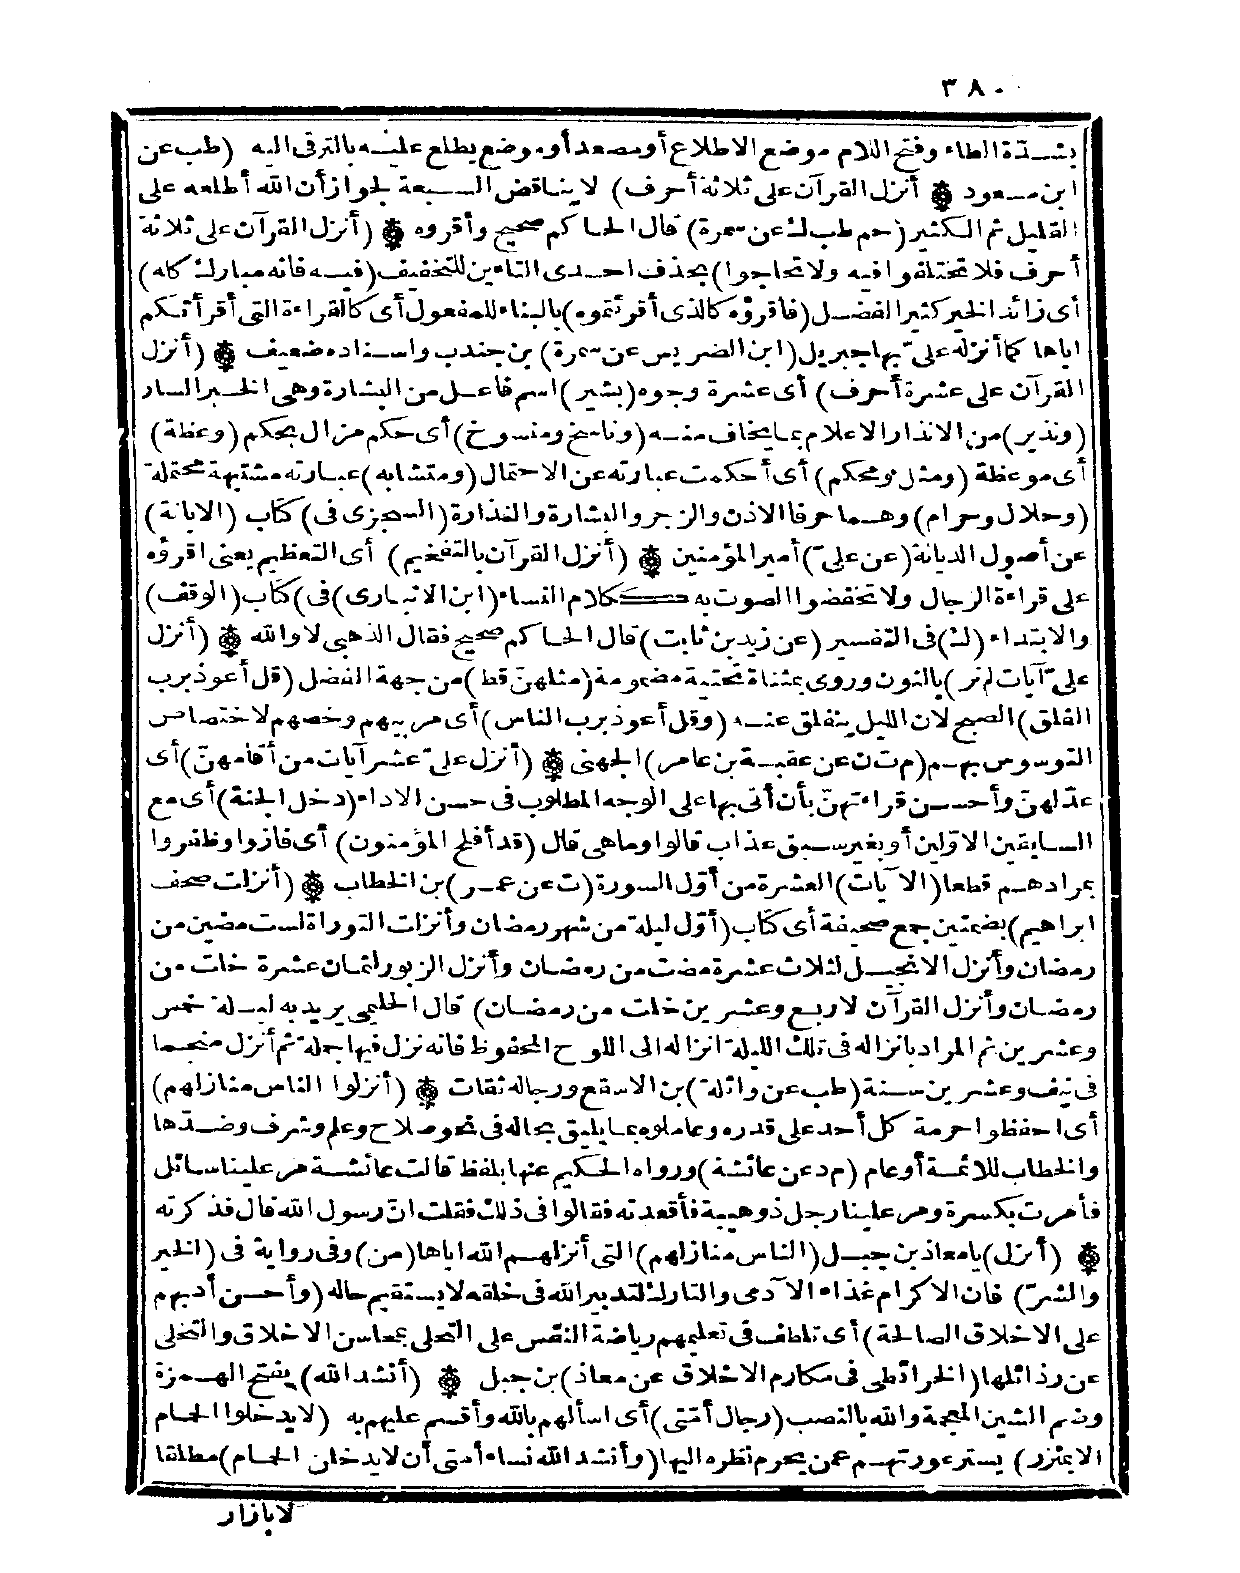 ٣٨٠
بشدة الطاء وفتح اللام موضع الاطلاع أو مصعد أو موضع يطلع عليه بالترقى اليه (طب عن
ابن مسعود ۞ أنزل القرآن على ثلاثة أحرف) لا يناقض السبعة لجواز أن الله أطلعه على
القليل ثم الكثير (حم طب ك عن سمرة) قال الحاكم صحيح وأقروه ۞ (أنزل القرآن على ثلاثة
أحرف فلا تختلفوا فيه ولا تحاجوا) بحذف احدى التاءين للتخفيف (فيه فانه مبارك كله)
أى زائد الخير كثير الفضل (فاقرؤه كالذى أقرئتموه) بالبناء للمفعول أى كالقراءة التى أقرأتكم
اياها كما أنزله علىّ بها جبريل (ابن الضريس عن سمرة) بن جندب واسناده ضعيف ۞ (أنزل
القرآن على عشرة أحرف) أى عشرة وجوه (بشير) اسم فاعل من البشارة وهى الخبر السار
(ونذير) من الانذار الاعلام بما يخاف منه (وناسخ ومنسوخ) أى حكم مزال بحكم (وعظة)
أى موعظة (ومثل ومحكم) أى أحكمت عبارته عن الاحتمال (ومتشابه) عبارته مشتبهة محتملة
(وحلال وحرام) وهما حرفا الاذن والزجر والبشارة والنذارة (السجزى فى) كتاب (الابانة)
عن أصول الديانة (عن علىّ) أمير المؤمنين ۞ (أنزل القرآن بالتفخيم) أى التعظيم يعنى اقرؤه
على قراءة الرجال ولا تخفضوا الصوت به ككلام النساء (ابن الانبارى) فى كتاب (الوقف)
والابتداء (ك) فى التفسير (عن زيد بن ثابت) قال الحاكم صحيح فقال الذهبى لا والله ۞ (أنزل
علىّ آيات لم نر) بالنون وروى بمثناة تحتية مضمومة (مثلهنّ قط) من جهة الفضل (قل أعوذ برب
الفلق) الصبح لان الليل ينفلق عنه (وقل أعوذ برب الناس) أى مربيهم وخصهم لاختصاص
التوسوس بهم (م ت ن عن عقبة بن عامر) الجهنى ۞ (أنزل علىّ عشر آيات من أقامهنّ) أى
عدلهنّ وأحسن قراءتهنّ بأن أتى بها على الوجه المطلوب فى حسن الاداء (دخل الجنة) أى مع
السابقين الاوّلين أو بغير سبق عذاب قالوا وما هى قال (قد أفلح المؤمنون) أى فازوا وظفروا
بمرادهم قطعا (الآيات) العشرة من أوّل السورة (ت عن عمر) بن الخطاب ۞ (أنزلت صحف
ابراهيم) بضمتين جمع صحيفة أى كتاب (أوّل ليلة من شهر رمضان وأنزلت التوراة لست مضين من
رمضان وأنزل الانجيل لثلاث عشرة مضت من رمضان وأنزل الزبور لثمان عشرة خلت من
رمضان وأنزل القرآن لاربع وعشرين خلت من رمضان) قال الحليمى يريد به ليلة خمس
وعشرين ثم المراد بانزاله فى تلك الليلة انزاله الى اللوح المحفوظ فانه نزل فيها جملة ثم أنزل منجما
فى نيف وعشرين سنة (طب عن واثلة) بن الاسقع ورجاله ثقات ۞ (أنزلوا الناس منازلهم)
أى احفظوا حرمة كل أحد على قدره وعاملوه بما يليق بحاله فى نحو صلاح وعلم وشرف وضدها
والخطاب للائمة أو عام (م د عن عائشة) ورواه الحكيم عنها بلفظ قالت عائشة مر علينا سائل
فأمرت بكسرة ومر علينا رجل ذو هيبة فأقعدته فقالوا فى ذلك فقلت انّ رسول الله قال فذكرته
۞ (أنزل) يا معاذ بن جبل (الناس منازلهم) التى أنزلهم الله اياها (من) وفى رواية فى (الخير
والشرّ) فان الاكرام غذاء الآدمى والتارك لتدبير الله فى خلقه لا يستقيم حاله (وأحسن أدبهم
على الاخلاق الصالحة) أى تلطف فى تعليمهم رياضة النفس على التحلى بمحاسن الاخلاق والتخلى
عن رذائلها (الخرائطى فى مكارم الاخلاق عن معاذ) بن جبل ۞ (أنشد الله) بفتح الهمزة
وضم الشين المعجمة والله بالنصب (رجال أمّتى) أى اسألهم بالله وأقسم عليهم به (لا يدخلوا الحمام
الا بمئزر) يستر عورتهم عمن يحرم نظره اليها (وأنشد الله نساء أمتى أن لا يدخلن الحمام) مطلقا
لا بازار